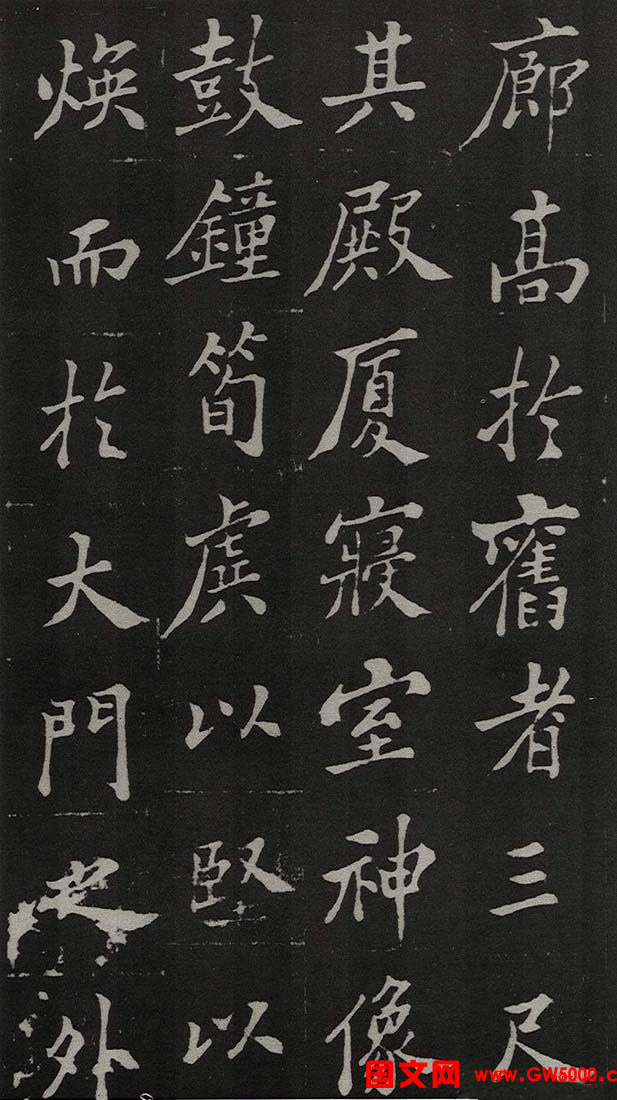 廊高於舊者三尺
其殿厦寢室神像
鼓鐘筍虡以堅以
煥而於大門之外
国文网 www.GW5000.c